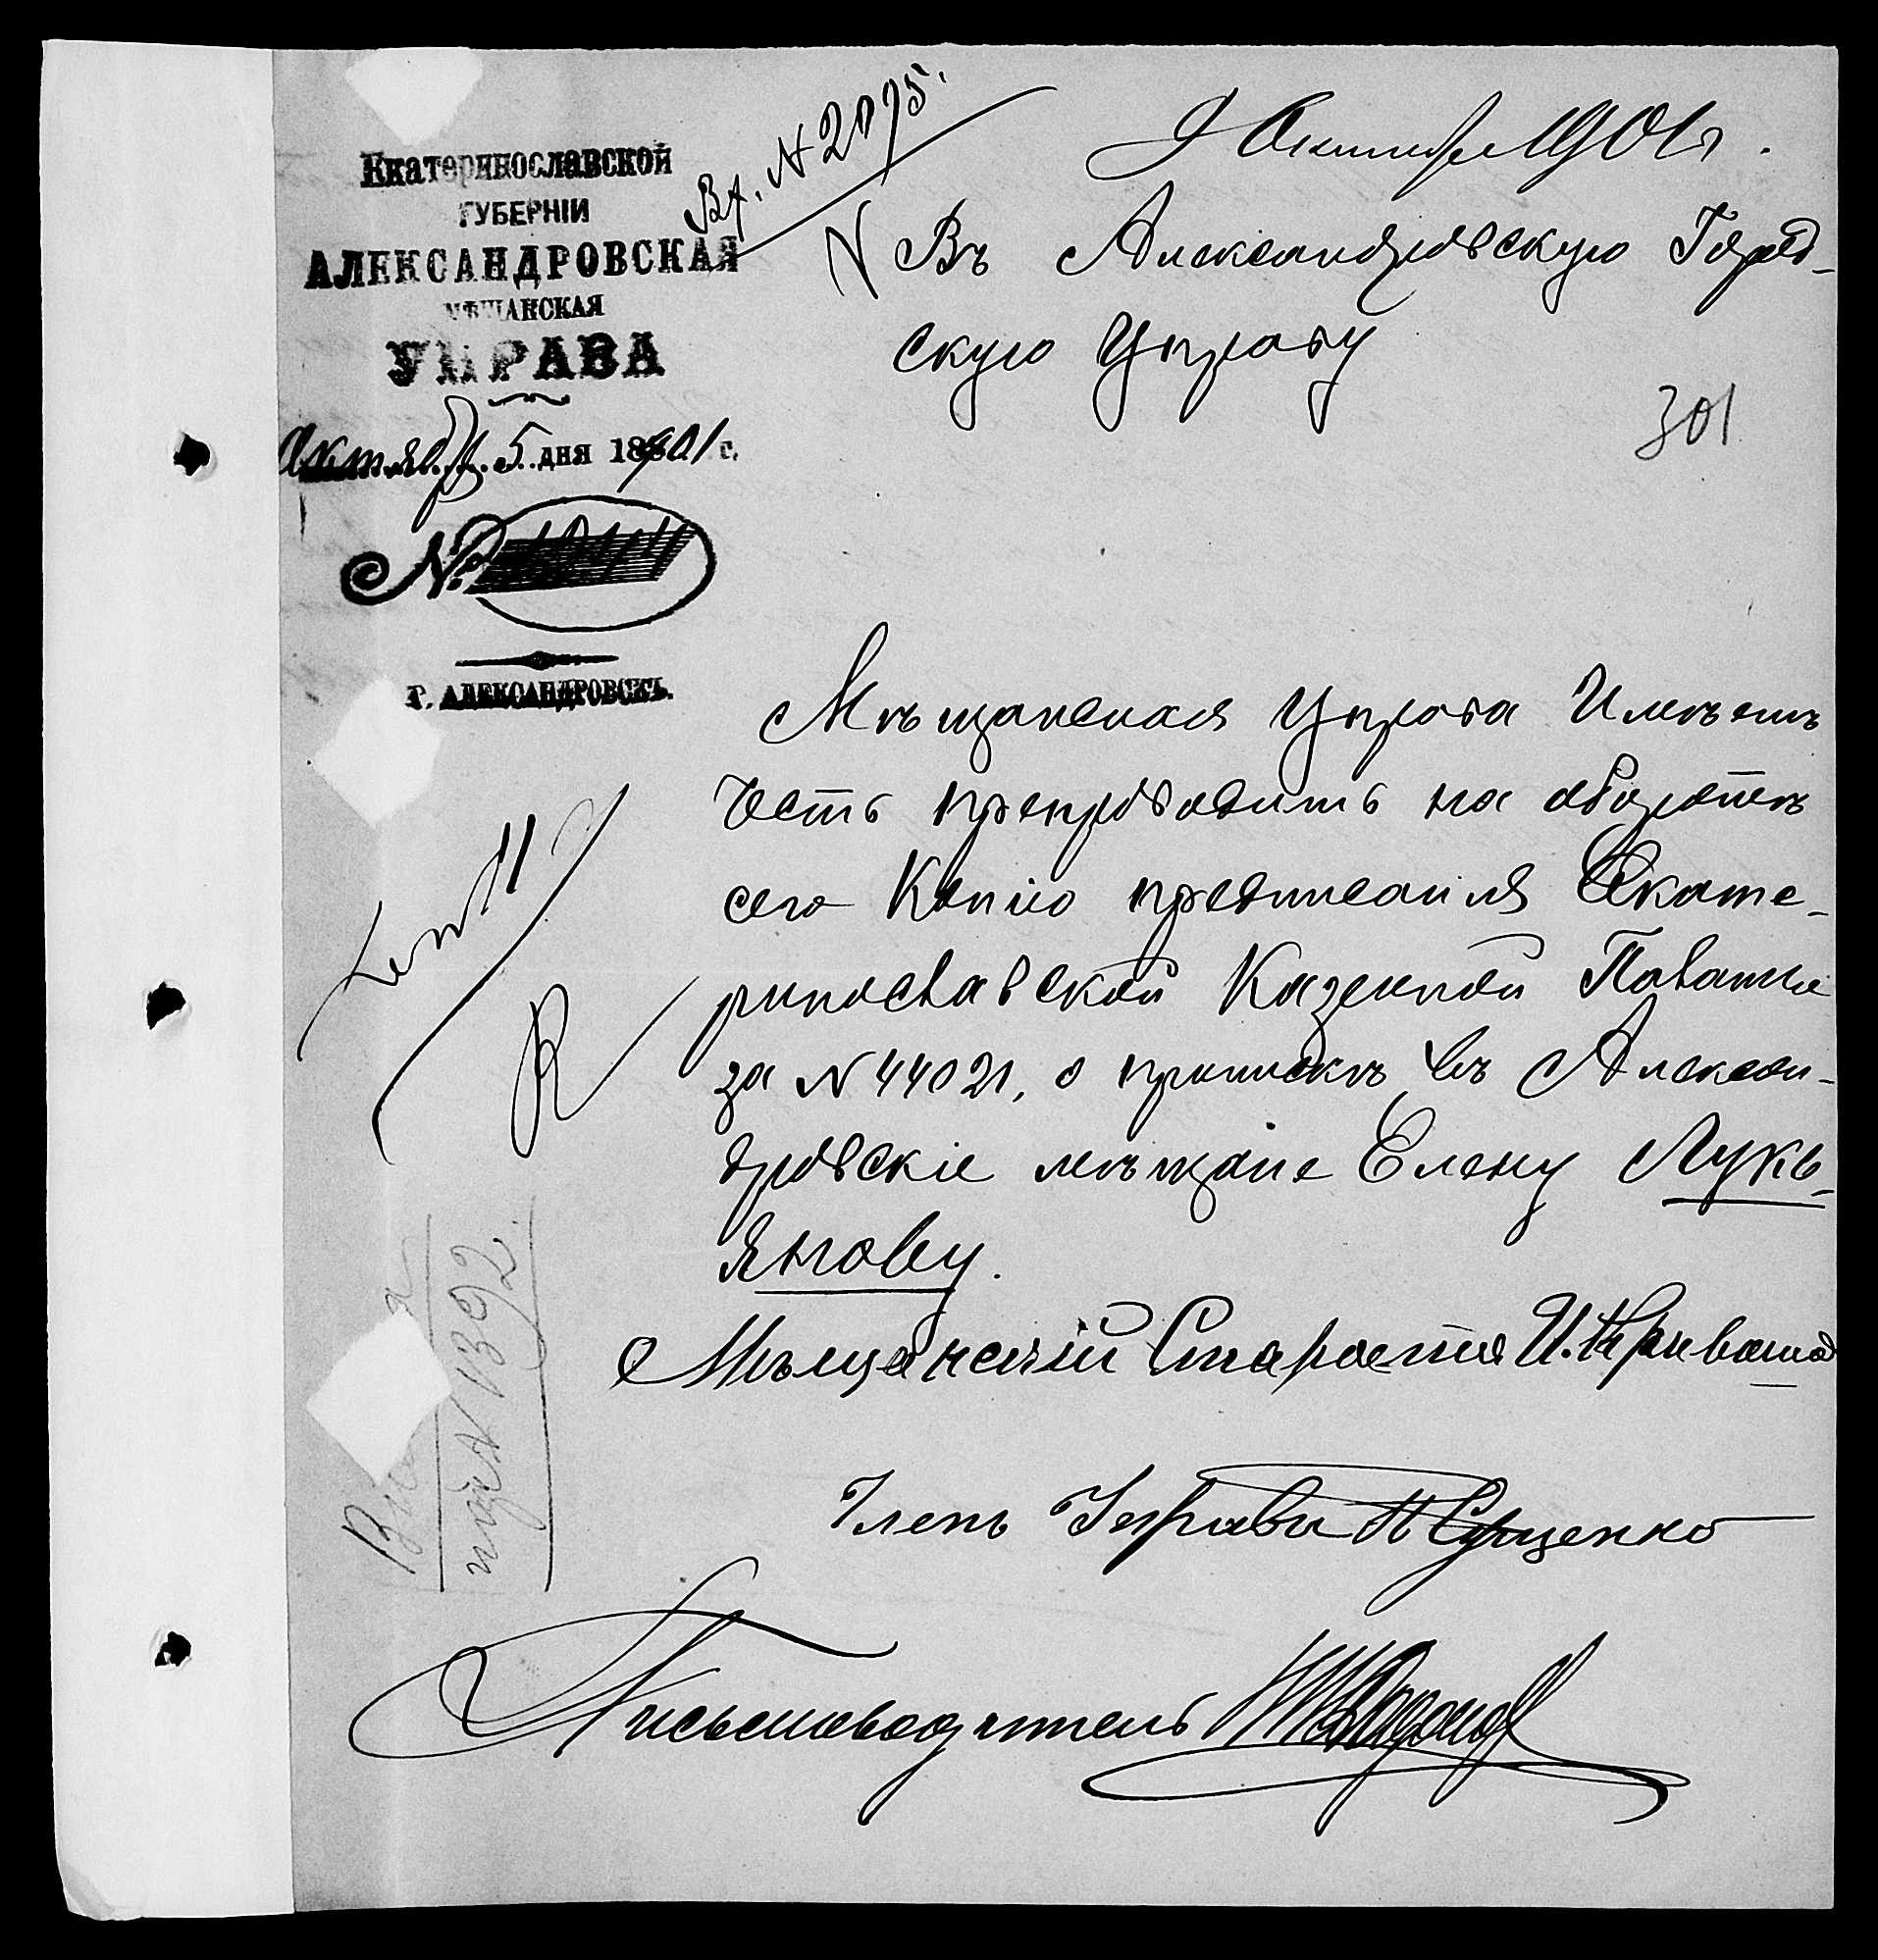 Екатеринославской
ГУБЕРНІИ
АЛЕКСАНДРОВСКАЯ
МѢЩАНСКАЯ
УПРАВА
Октября 5 дня 1901 г.
№
Г. АЛЕКСАНДРОВСКЪ.
Вх. N 2095.
9 Октября 1901 г.
Въ Александровскую Город-
скую Управу
301
Мѣщанская Управа Имѣетъ
честь препроводить на оборотѣ
сего Копію предписанія Екате-
ринославской Казенной Палаты
за N 44021, о припискѣ въ Алексан-
дровскіе мѣщане Елену Лукь-
янову.
Мѣщанскій Староста И.
Членъ Управы
Письмоводитель
N 1392.